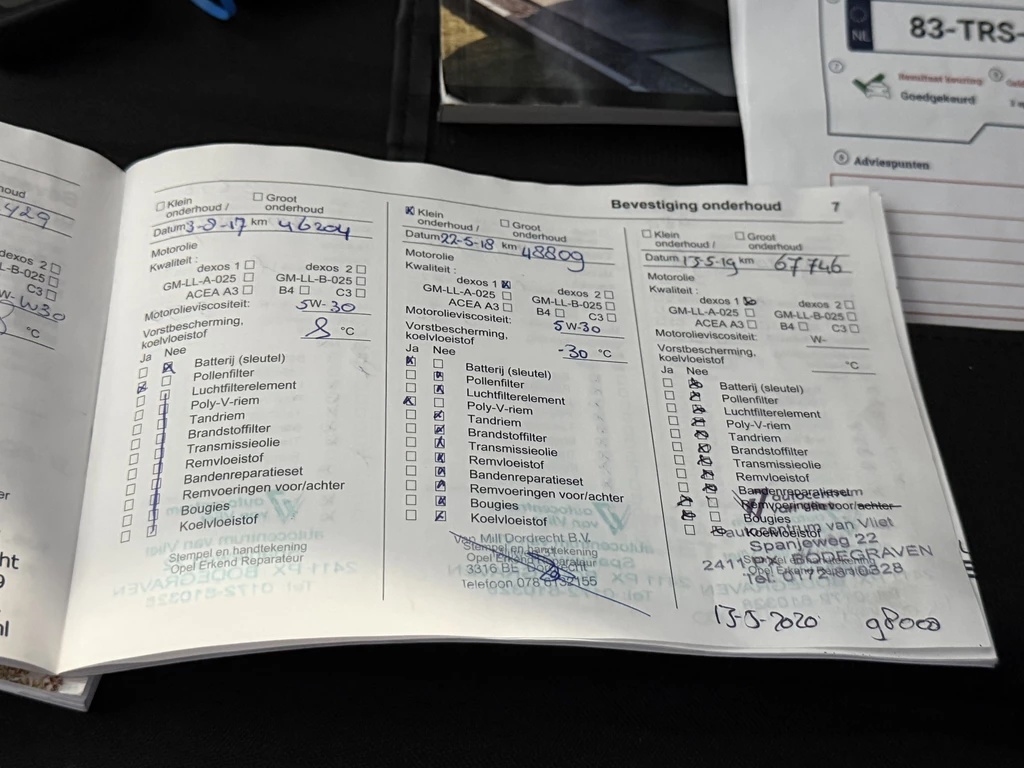 NL
83-TRS-
7
Goedgekeurd
8 Adviespunten
houd
429
dexos 2 □
L-B-025 □
C3 □
W-W30
°C
er
ht
9
nl
Bevestiging onderhoud 7
□ Klein onderhoud / □ Groot onderhoud
Datum 3-8-17 km 46204
Motorolie
Kwaliteit :
dexos 1 □ dexos 2 □
GM-LL-A-025 □ GM-LL-B-025 □
ACEA A3 □ B4 □ C3 □
Motorolieviscositeit: 5W-30
Vorstbescherming,
koelvloeistof °C
Ja Nee
Batterij (sleutel)
Pollenfilter
Luchtfilterelement
Poly-V-riem
Tandriem
Brandstoffilter
Transmissieolie
Remvloeistof
Bandenreparatieset
Remvoeringen voor/achter
Bougies
Koelvloeistof
Stempel en handtekening
Opel Erkend Reparateur
☒ Klein onderhoud / □ Groot onderhoud
Datum 22-5-18 km 48809
Motorolie
Kwaliteit :
dexos 1 ☒ dexos 2 □
GM-LL-A-025 □ GM-LL-B-025 □
ACEA A3 □ B4 □ C3 □
Motorolieviscositeit: 5W-30
Vorstbescherming,
koelvloeistof -30 °C
Ja Nee
Batterij (sleutel)
Pollenfilter
Luchtfilterelement
Poly-V-riem
Tandriem
Brandstoffilter
Transmissieolie
Remvloeistof
Bandenreparatieset
Remvoeringen voor/achter
Bougies
Koelvloeistof
Van Mill Dordrecht B.V.
Stempel en handtekening
Opel Erkend Reparateur
3316 BE Dordrecht
Telefoon 078
□ Klein onderhoud / □ Groot onderhoud
Datum 13-5-19 km 67746
Motorolie
Kwaliteit :
dexos 1 ☒ dexos 2 □
GM-LL-A-025 □ GM-LL-B-025 □
ACEA A3 □ B4 □ C3 □
Motorolieviscositeit: W-
Vorstbescherming,
koelvloeistof °C
Ja Nee
Batterij (sleutel)
Pollenfilter
Luchtfilterelement
Poly-V-riem
Tandriem
Brandstoffilter
Transmissieolie
Remvloeistof
Bandenreparatieset
Remvoeringen voor/achter
Bougies
Koelvloeistof
autocentrum van Vliet
Spanjeweg 22
2411 PX BODEGRAVEN
Tel. 0172-610328
13-5-2020 98000